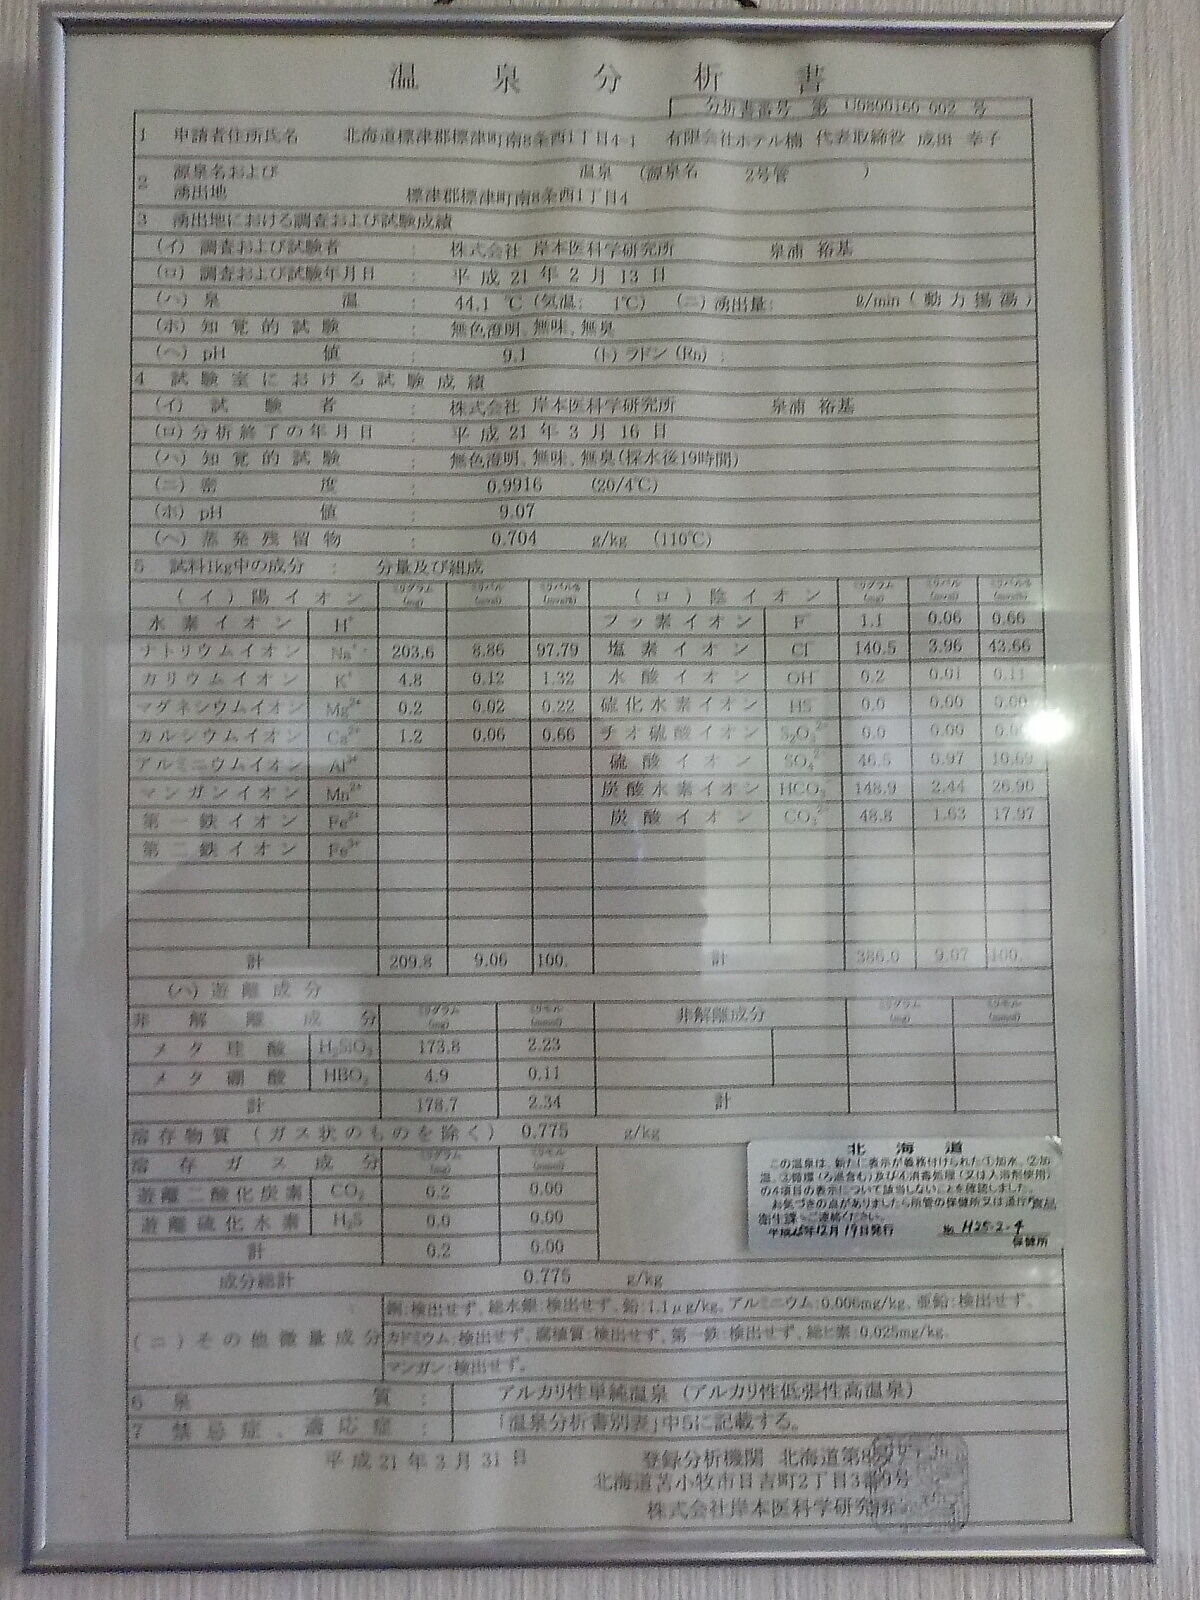 温泉分析書
分析書番号 第 U0800160-002 号
1 申請者住所氏名 北海道標津郡標津町南8条西1丁目4-1 有限会社ホテル楠 代表取締役 成田 幸子
2 源泉名および 温泉 (源泉名 2号管 )
湧出地 標津郡標津町南8条西1丁目4
3 湧出地における調査および試験成績
(イ) 調査および試験者 : 株式会社 岸本医科学研究所 泉浦 裕基
(ロ) 調査および試験年月日 : 平成21年2月13日
(ハ) 泉温 : 44.1 ℃ (気温: 1℃) (ニ) 湧出量: ℓ/min (動力揚湯)
(ホ) 知覚的試験 : 無色澄明、無味、無臭
(ヘ) pH値 : 9.1 (ト) ラドン (Rn) :
4 試験室における試験成績
(イ) 試験者 : 株式会社 岸本医科学研究所 泉浦 裕基
(ロ) 分析終了の年月日 : 平成21年3月16日
(ハ) 知覚的試験 : 無色澄明、無味、無臭(採水後19時間)
(ニ) 密度 : 0.9916 (20/4℃)
(ホ) pH値 : 9.07
(ヘ) 蒸発残留物 : 0.704 g/kg (110℃)
5 試料1kg中の成分 : 分量及び組成
(イ) 陽イオン ミリグラム(mg) ミリバル(mval) ミリバル%(mval%) (ロ) 陰イオン ミリグラム(mg) ミリバル(mval) ミリバル%(mval%)
水素イオン H⁺ フッ素イオン F⁻ 1.1 0.06 0.66
ナトリウムイオン Na⁺ 203.6 8.86 97.79 塩素イオン Cl⁻ 140.5 3.96 43.66
カリウムイオン K⁺ 4.8 0.12 1.32 水酸イオン OH⁻ 0.2 0.01 0.11
マグネシウムイオン Mg²⁺ 0.2 0.02 0.22 硫化水素イオン HS⁻ 0.0 0.00 0.00
カルシウムイオン Ca²⁺ 1.2 0.06 0.66 チオ硫酸イオン S₂O₃²⁻ 0.0 0.00
アルミニウムイオン Al³⁺ 硫酸イオン SO₄²⁻ 46.5 0.97 10.69
マンガンイオン Mn²⁺ 炭酸水素イオン HCO₃⁻ 148.9 2.44 26.90
第一鉄イオン Fe²⁺ 炭酸イオン CO₃²⁻ 48.8 1.63 17.97
第二鉄イオン Fe³⁺
計 209.8 9.06 100. 計 386.0 9.07 100.
(ハ) 遊離成分
非解離成分 ミリグラム(mg) ミリモル(mmol) 非解離成分 ミリグラム(mg) ミリモル(mmol)
メタ珪酸 H₂SiO₃ 173.8 2.23
メタ硼酸 HBO₂ 4.9 0.11
計 178.7 2.34 計
溶存物質 (ガス状のものを除く) 0.775 g/kg
溶存ガス成分 ミリグラム(mg) ミリモル(mmol)
遊離二酸化炭素 CO₂ 0.2 0.00
遊離硫化水素 H₂S 0.0 0.00
計 0.2 0.00
成分総計 0.775 g/kg
北海道
この温泉は、新たに表示が義務付けられた①加水、②加
温、③循環(ろ過含む)及び④消毒処理(又は入浴剤使用)
の4項目の表示について該当しないことを確認しました。
お気づきの点がありましたら所管の保健所又は道庁食品
衛生課へご連絡ください。
平成25年12月19日発行 H25-2-4
保健所
(ニ) その他微量成分 銅:検出せず、総水銀:検出せず、鉛:1.1μg/kg、アルミニウム:0.006mg/kg、亜鉛:検出せず、
カドミウム:検出せず、腐植質:検出せず、第一鉄:検出せず、総ヒ素:0.025mg/kg、
マンガン:検出せず。
6 泉質 : アルカリ性単純温泉 (アルカリ性低張性高温泉)
7 禁忌症、適応症 : 「温泉分析書別表」中5に記載する。
平成21年3月31日 登録分析機関 北海道第8号
北海道苫小牧市日吉町2丁目3番9号
株式会社岸本医科学研究所